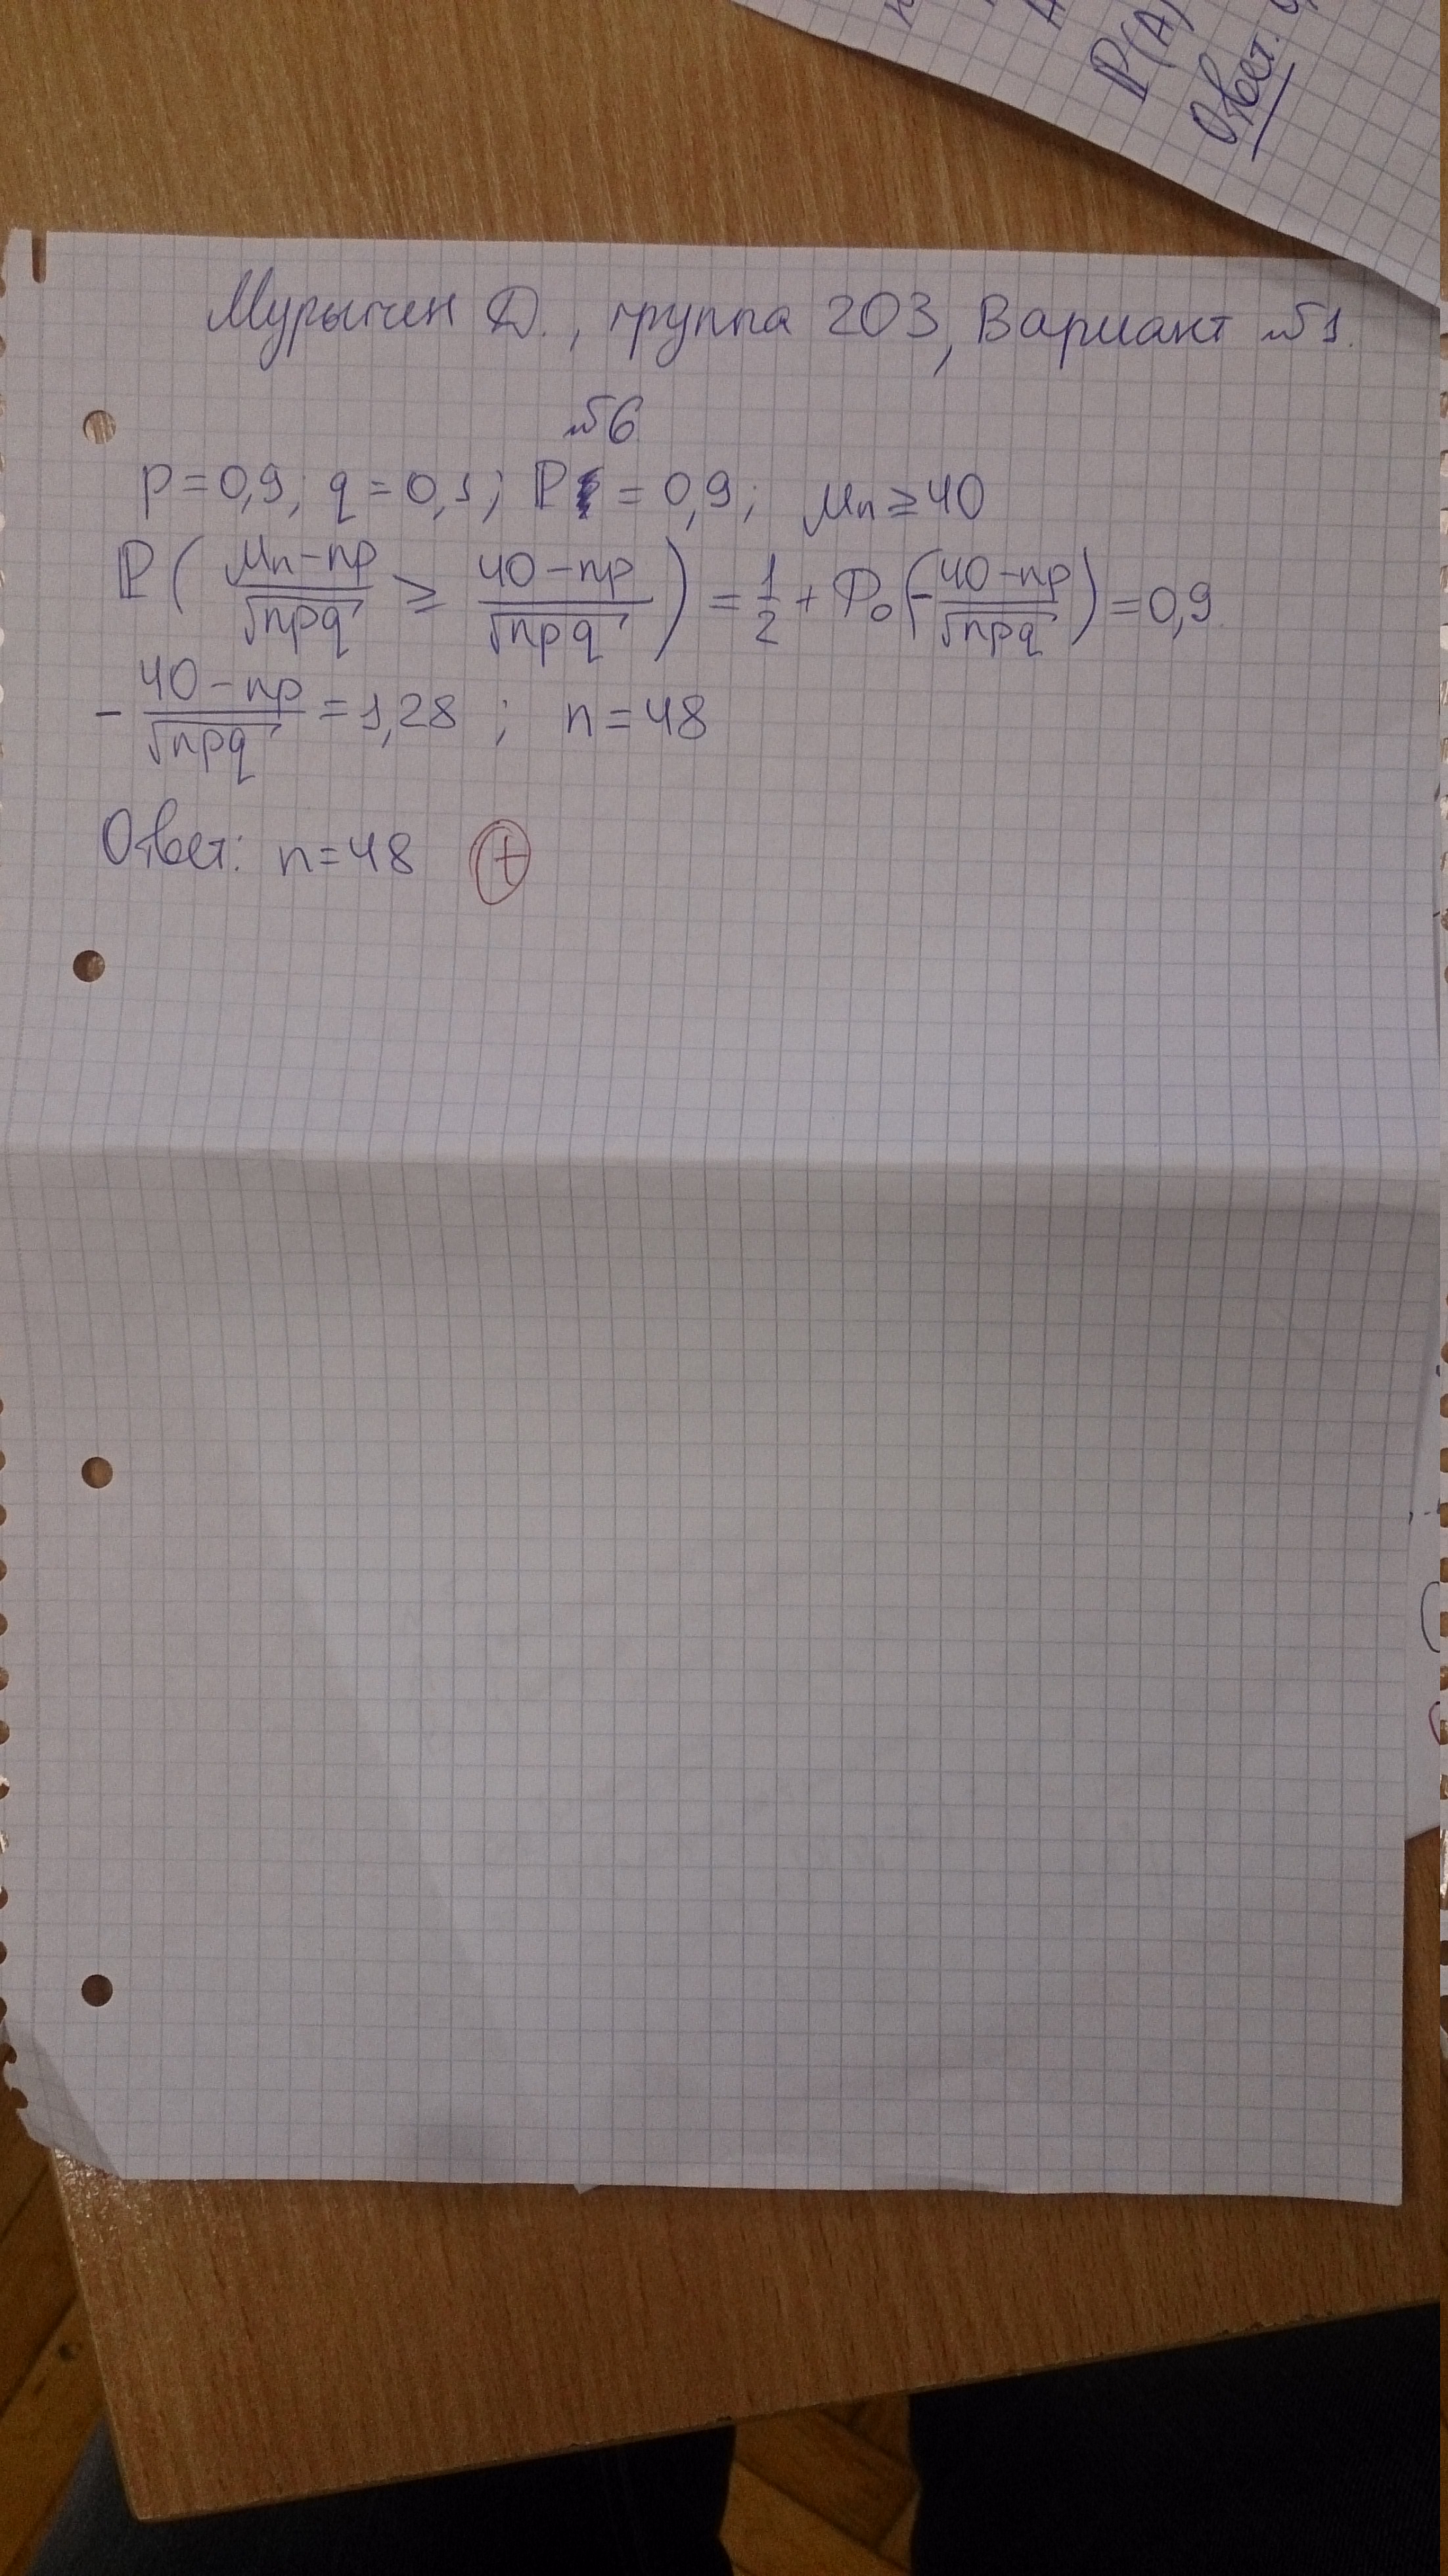 P(A)
Ответ.
Мурычен Д., группа 203, Вариант №1.
№6
p=0,9; q=0,1; P = 0,9; μn ≥ 40
P( (μn-np)/√npq ≥ (40-np)/√npq ) = 1/2 + Φ₀(-(40-np)/√npq) = 0,9
-(40-np)/√npq = 1,28 ; n=48
Ответ: n=48 +